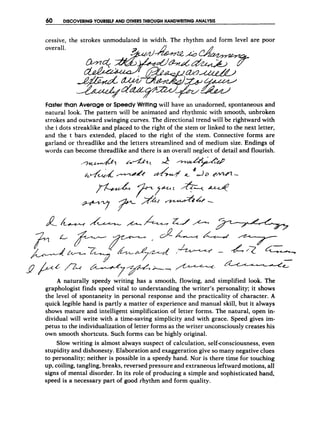 60 DISCOVERING YOURSELF AND OTHERS THROUGH HANDWRITING ANALYSIS
cessive, the strokes unmodulated in width. The rhythm and form level are poor
overall.
Your home is Charming
and the food and drink
delicious! Please as well
extend our thanks to your
lovely daughter
Faster than Average or Speedy Writing will have an unadorned, spontaneous and
natural look. The pattern will be animated and rhythmic with smooth, unbroken
strokes and outward swinging curves. The directional trend will be rightward with
the i dots streaklike and placed to the right of the stem or linked to the next letter,
and the t bars extended, placed to the right of the stem. Connective forms are
garland or threadlike and the letters streamlined and of medium size. Endings of
words can become threadlike and there is an overall neglect of detail and flourish.
number when 2 multiplied
which made about
Thanks for your time and
sorry for the
I have been interested in graphology
for a few years. I have had my
I feel the
A naturally speedy writing has a smooth, flowing, and simplified look. The
graphologist finds speed vital to understanding the writer's personality; it shows
the level of spontaneity in personal response and the practicality of character. A
quick legible hand is partly a matter of experience and manual skill, but it always
shows mature and intelligent simplification of letter forms. The natural, open in-
dividual will write with a time-saving simplicity and with grace. Speed gives im-
petus to the individualization of letter forms as the writer unconsciously creates his
own smooth shortcuts. Such forms can be highly original.
Slow writing is almost always suspect of calculation, self-consciousness, even
stupidity and dishonesty. Elaboration and exaggeration give so many negative clues
to personality; neither is possible in a speedy hand. Nor is there time for touching
up, coiling, tangling, breaks, reversed pressure and extraneous leftward motions, all
signs of mental disorder. In its role of producing a simple and sophisticated hand,
speed is a necessary part of good rhythm and form quality.